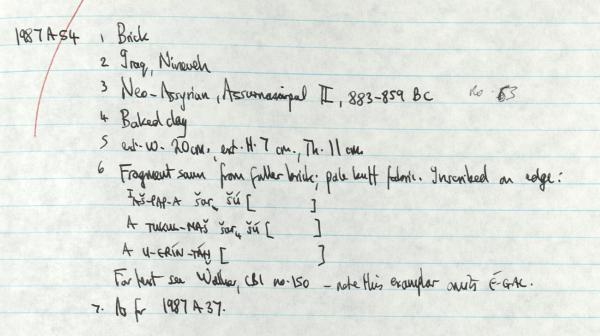 1987A54 1 Brick
2 Iraq, Nineveh
3 Neo-Assyrian, Assurnasirpal II, 883-859 BC No. 53
4 Baked clay
5 ext. W. 20 cm, ext. H. 7 cm, Th. 11 cm.
6 Fragment sawn from fuller brick; pale buff fabric. Inscribed on edge:
ᴵAŠ-PAP-A šar₄ šú [ ]
A TUKUL-MAŠ šar₄ šú [ ]
A U-ERÍN-TÁḪ [ ]
For text see Walker, CBI no. 150 - note this exemplar omits É-GAL.
7. As for 1987A37.